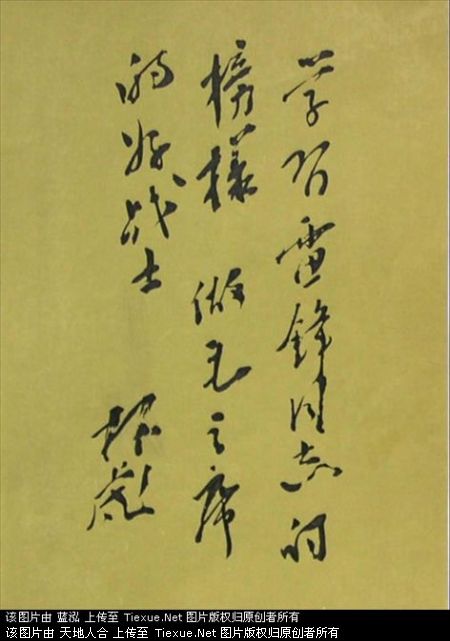 学习雷锋同志的
榜樣 做毛主席
的好战士
林彪
该图片由 蓝泓 上传至 Tiexue.Net 图片版权归原创者所有
该图片由 天地人合 上传至 Tiexue.Net 图片版权归原创者所有